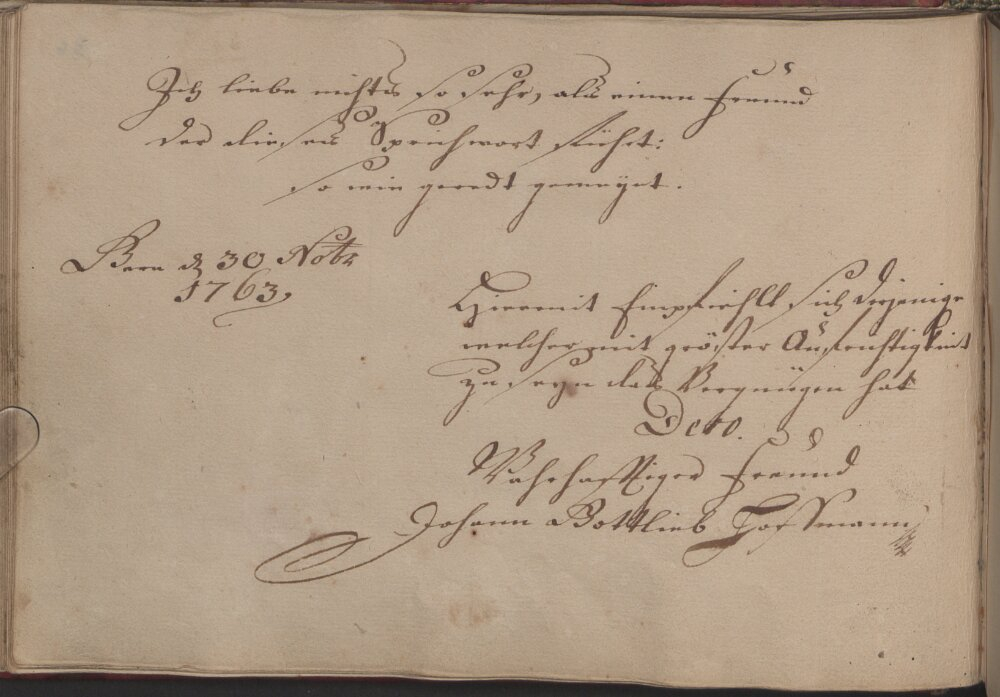 Ich liebe nichts so sehr, als einen Freund
der dieses Sprichwort führt:
so wie geredt gemeÿnt.
Bern d 30 Nobr
1763,
Hiermit Empfiehlt sich derjenige
welcher mit gröster Aufrichtigkeit
zu seÿn das Vergnügen hat
Dero.
Wahrhafftiger Freund
Johann Gottlieb Hoffmann